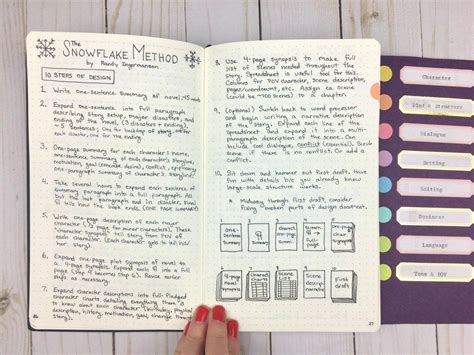 The
SNOWFLAKE METHOD
by Randy Ingermanson
10 STEPS OF DESIGN
1. Write one-sentence summary of novel,
2. Expand one-sentence into full paragraph
describing story setup, major disasters, and
ending of the novel. (3 disasters + ending
~5 sentences) One for backdrop of story, other
for each disaster + ending.
3. One-page summary for each character: name,
one-sentence summary of character's storyline,
motivation, goal (concrete), conflict, epiphany,
one-paragraph summary of character's storyline.
4. Take several hours to expand each sentence of
summary paragraph into a full paragraph. All
but the last paragraph end in disaster, final
one tells ending. (ONE PAGE SUMMARY)
5. Write one-page description of each major
character (½ page for minor characters). These
"character synopses" tell story from POV
of each character. (Each character gets to tell his/
her story).
6. Expand one-page plot synopsis of novel to
4-page synopsis. Expand each ¶ into a full
page (step 4 becomes step 6). Revise earlier
steps as needed.
7. Expand character descriptions into full-fledged
character charts detailing everything there is
to know about each character (birthday, physical
history, motivation, goal, change throughout
story).
26
8. Use 4-page synopsis to make full
list of scenes needed throughout the
story. Spreadsheet is useful tool for this.
Columns for POV character, scene description,
pages/wordcount, etc. Assign each scene
(could be ~100 scenes) to chapter.
9. (Optional) Switch back to word processor
and begin writing a narrative description
of the story. Expand each line of the
spreadsheet and expand it into a multi-
paragraph description of the scene. Can
include cool dialogue, conflict (essential). Scrub
scene if there is no conflict. Or add a
conflict.
10. Sit down and hammer out first draft. Have
fun with details b/c you already know
large-scale structure works.
* Midway through first draft, consider
fixing broken parts of design document.
1
one-
sentence
summary
2
¶
summary
4
one-
page
6
4-page
novel
synopsis
7
Character
charts
8
Scene
List
9
scene
design
narrative
10
First
draft
27
Character
Plot & Structure
Dialogue
Setting
Editing
Business
Language
Tone & POV